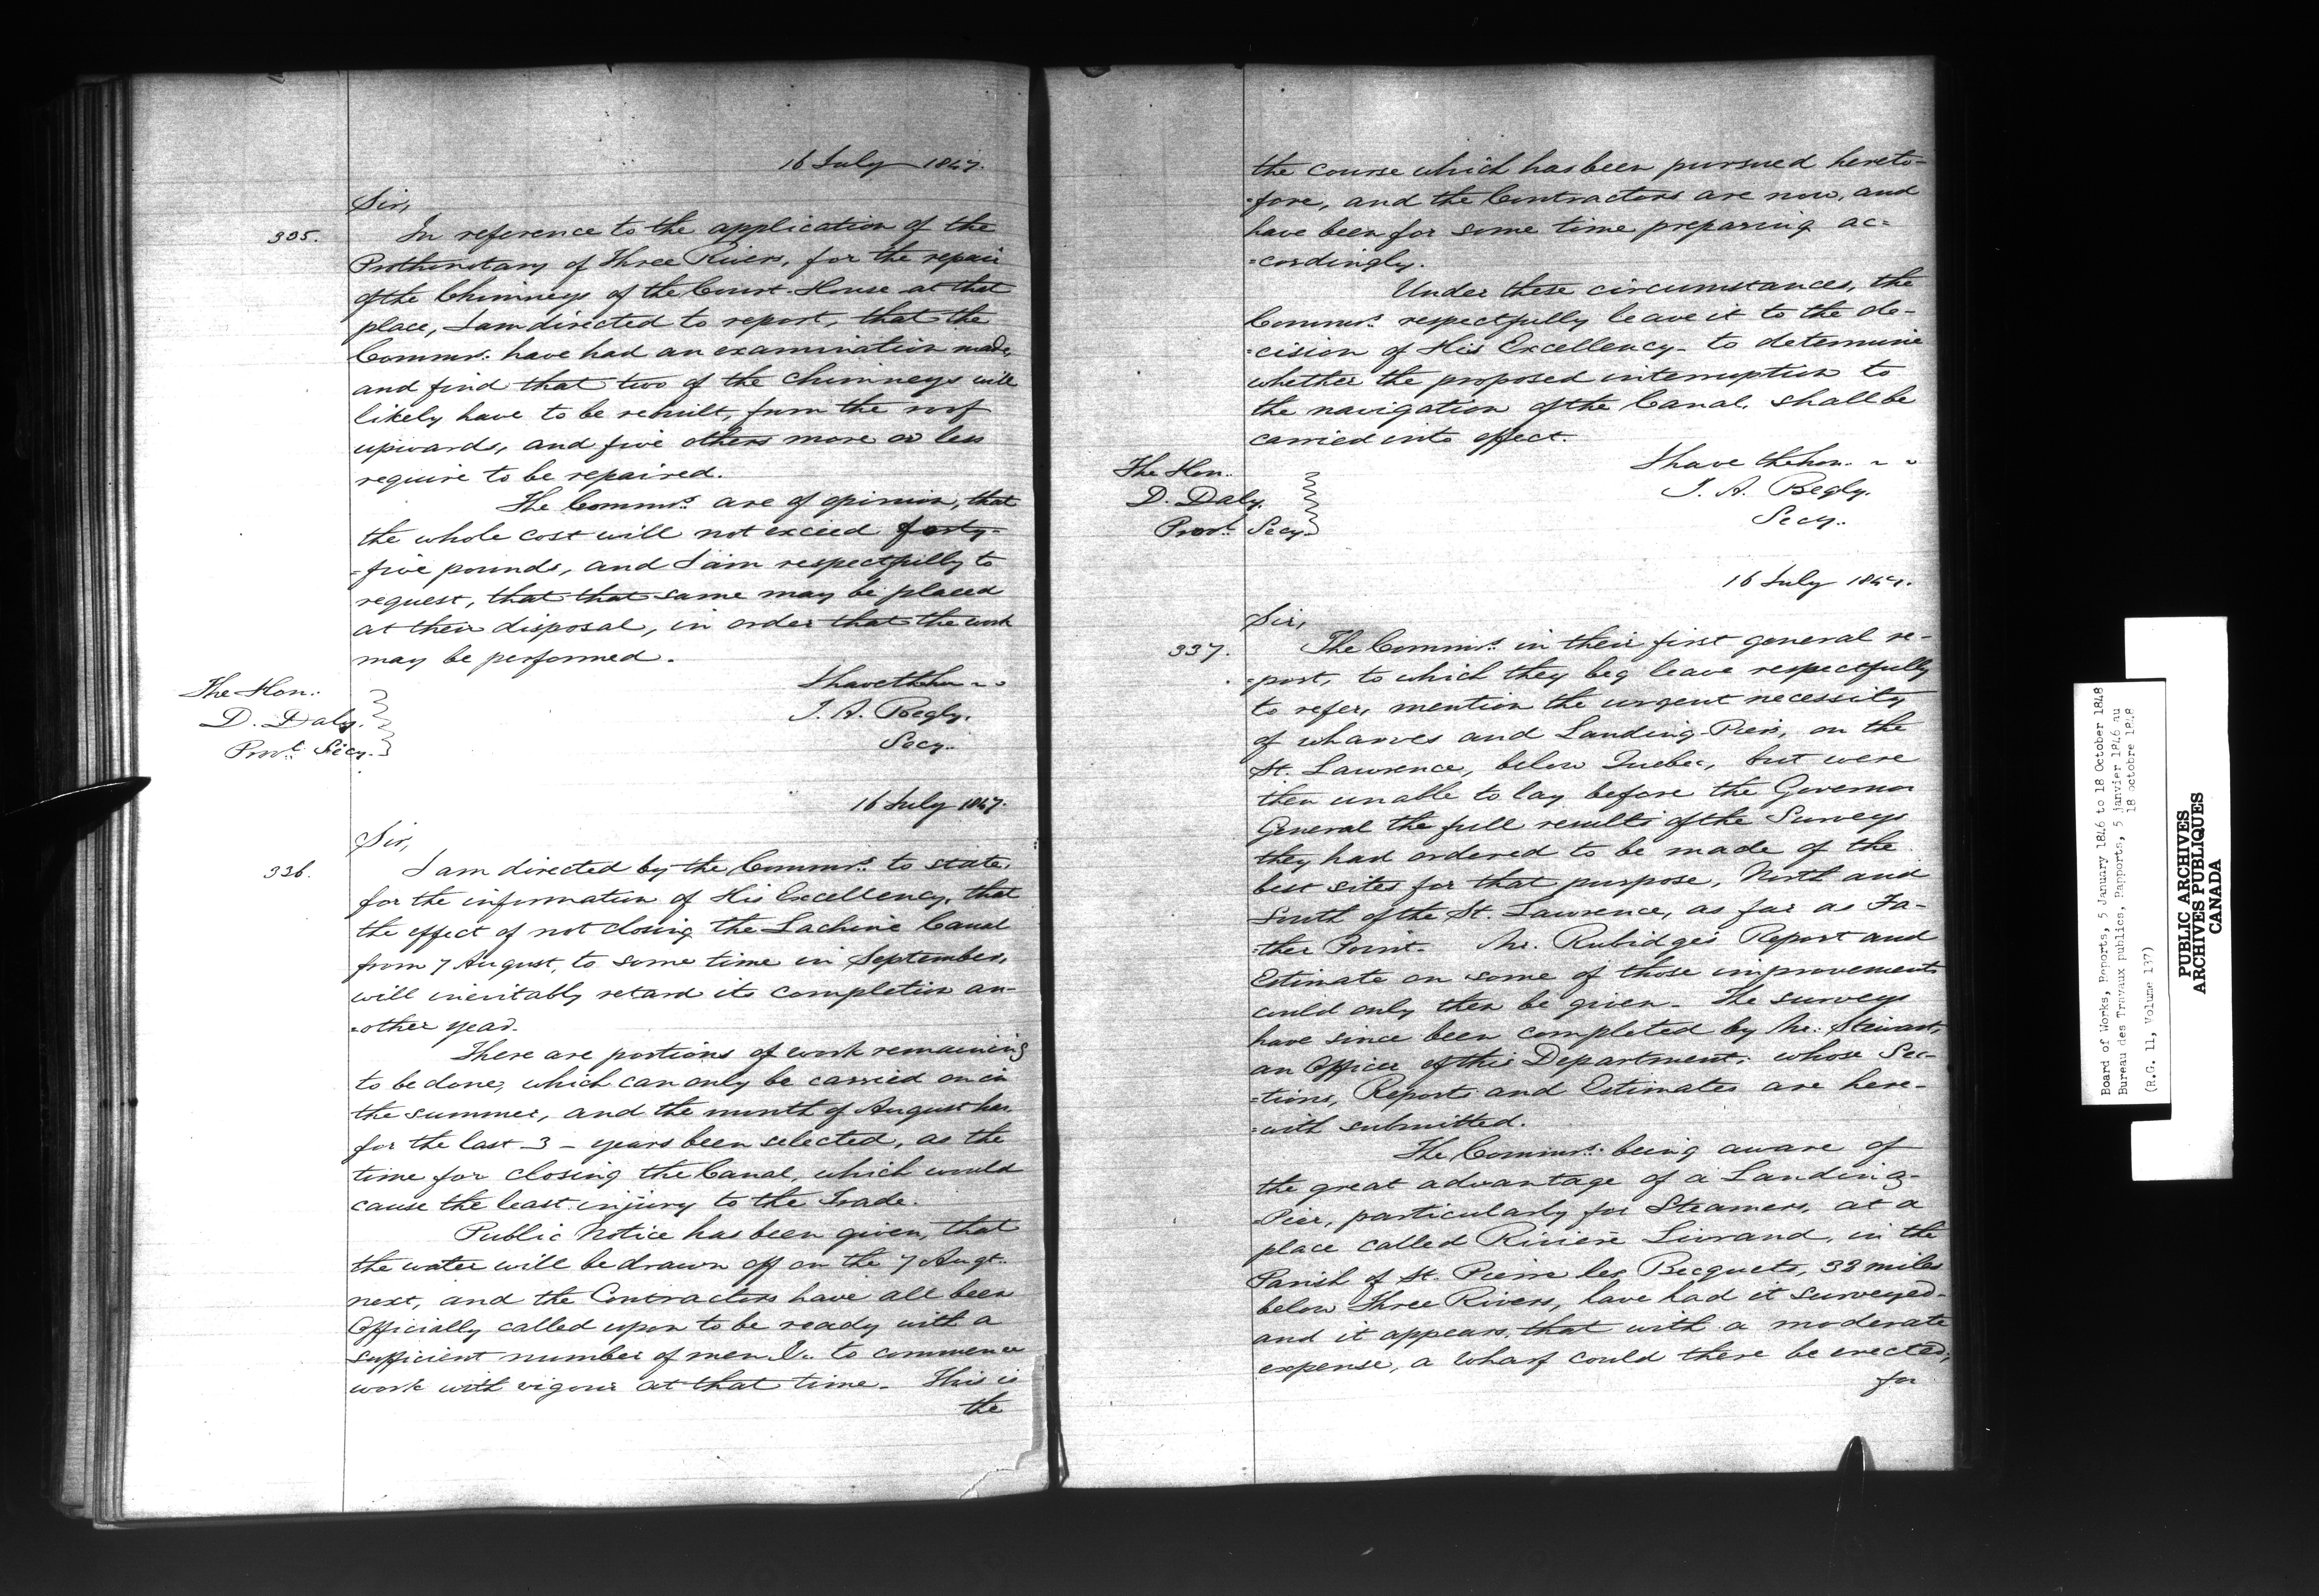 16 July 1847.
Sir,
335.
In reference to the application of the
Prothonotary of Three Rivers, for the repair
of the Chimneys of the Court-House at that
place, I am directed to report, that the
Commrs. have had an examination made,
and find that two of the chimneys will
likely have to be rebuilt, from the roof
upwards, and five others more or less
require to be repaired.
The Commrs. are of opinion, that
the whole cost will not exceed forty-
=five pounds, and I am respectfully to
request, that that same may be placed
at their disposal, in order that the work
may be performed.
I have the hon ~ ~
T. A. Begly.
Secy.
The Hon.
D. Daly.
Provl. Secy.
16 July 1847.
Sir,
336.
I am directed by the Commrs. to state,
for the information of His Excellency, that
the effect of not closing the Lachine Canal
from 7 August, to some time in September,
will inevitably retard its completion an-
=other year.
There are portions of work remaining
to be done, which can only be carried on in
the summer, and the month of August has
for the last 3 - years been selected, as the
time for closing the Canal, which would
cause the least injury to the Trade.
Public Notice has been given, that
the water will be drawn off on the 7 Augt.
next, and the Contractors have all been
Officially called upon to be ready with a
sufficient number of men &c. to commence
work with vigour at that time. This is
the
the course which has been pursued hereto-
=fore, and the Contractors are now, and
have been for some time preparing ac=
=cordingly.
Under these circumstances, the
Commrs. respectfully leave it to the de-
=cision of His Excellency - to determine
whether the proposed interruption to
the navigation of the Canal, shall be
carried into effect.
I have the hon. ~ ~
T. A. Begly.
Secy.
The Hon.
D. Daly.
Provl. Secy.
16 July 1847.
Sir,
337.
The Commrs. in their first general re-
=port, to which they beg leave respectfully
to refer, mention the urgent necessity
of wharves and Landing-Piers, on the
St. Lawrence, below Quebec, but were
then unable to lay before the Governor
General the full results of the Surveys
they had ordered to be made of the
best sites for that purpose, North and
South of the St. Lawrence, as far as Fa-
=ther Point. Mr. Rubidge's Report and
Estimate on some of those improvements
could only then be given - The surveys
have since been completed by Mr. Stewart,
an Officer of this Department; whose Sec-
=tions, Reports and Estimates are here-
=with submitted.
The Commrs. being aware of
the great advantage of a Landing-
=Pier, particularly for Steamers, at a
place called Rivière Livrand, in the
Parish of St. Pierre les Becquets, 38 miles
below Three Rivers, have had it surveyed -
and it appears, that with a moderate
expense, a Wharf could there be erected,
for
Board of Works, Reports, 5 January 1846 to 18 October 1848
Bureau des Travaux publics, Rapports, 5 janvier 1846 au
18 octobre 1848
(R.G. 11, Volume 137)
PUBLIC ARCHIVES
ARCHIVES PUBLIQUES
CANADA